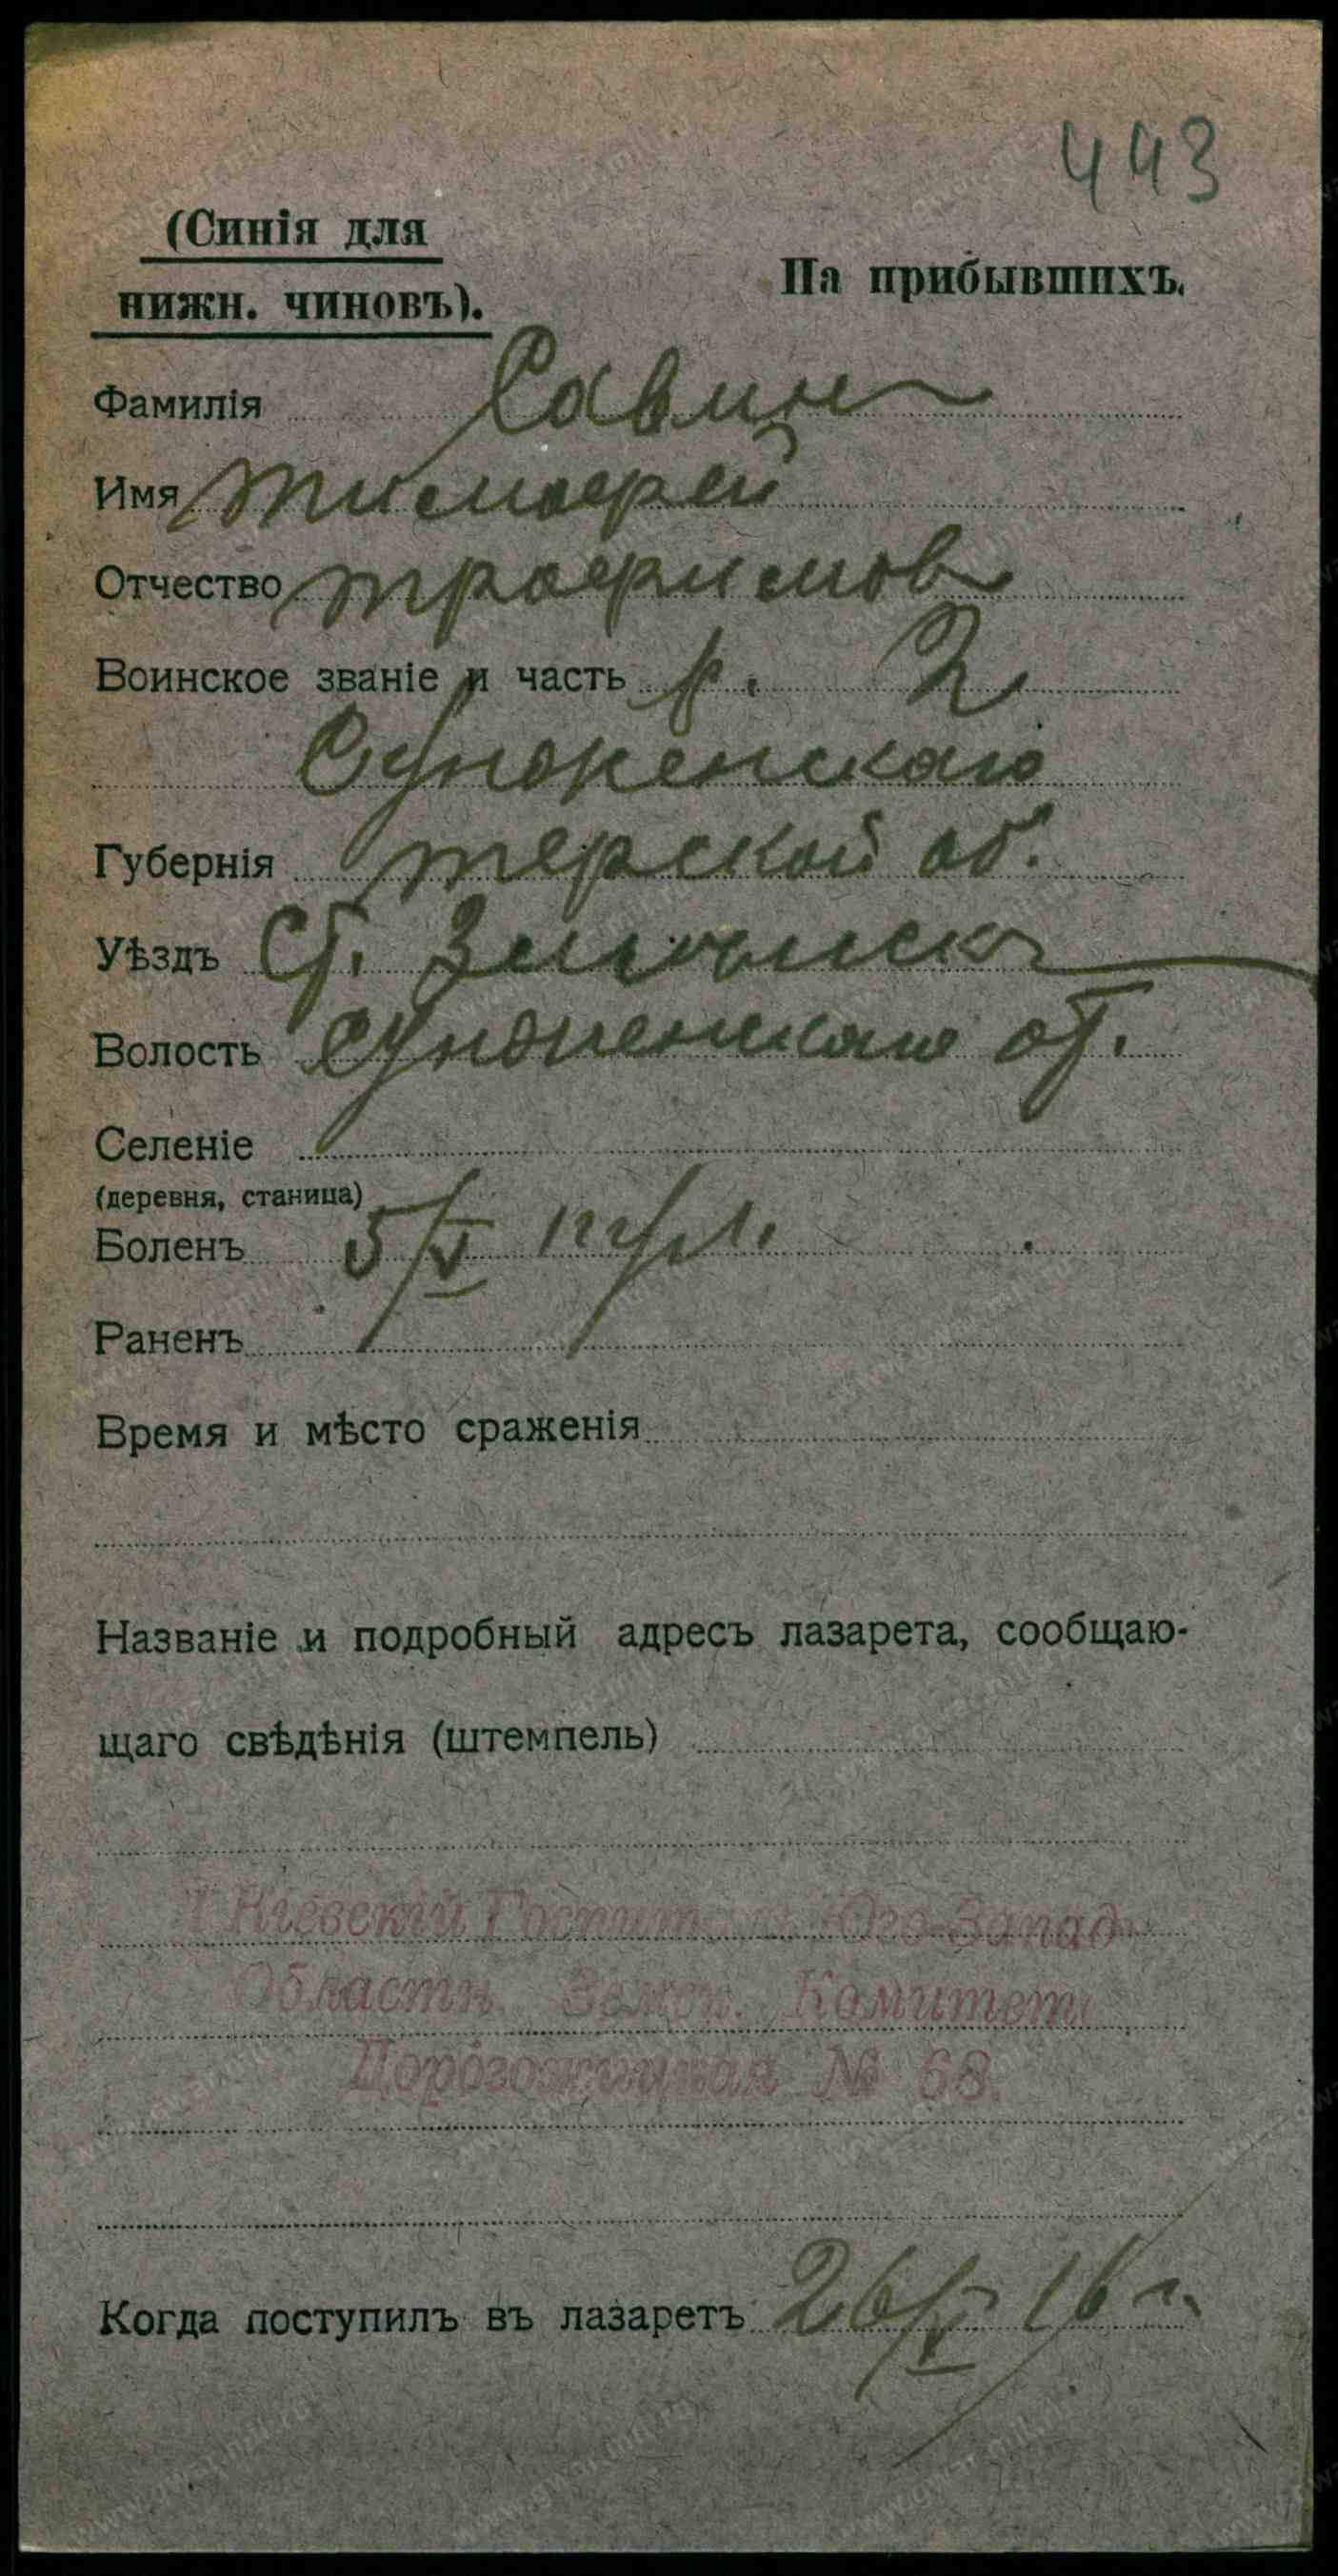 443
(Синія для
нижн. чиновъ).
На прибывшихъ.
Фамилія Савин
Имя Тимофей
Отчество Трофимов
Воинское званіе и часть 2
Сунженскаго
Губернія Терской об.
Уѣздъ Ст.
Волость Сунженскаго от.
Селеніе
(деревня, станица)
Боленъ 5/V
Раненъ
Время и мѣсто сраженія
Названіе и подробный адресъ лазарета, сообщаю-
щаго свѣдѣнія (штемпель)
Кіевскій Юго-Запад
Областн. Земск. Комитет
№ 68.
Когда поступилъ въ лазаретъ 26/V 16 г.